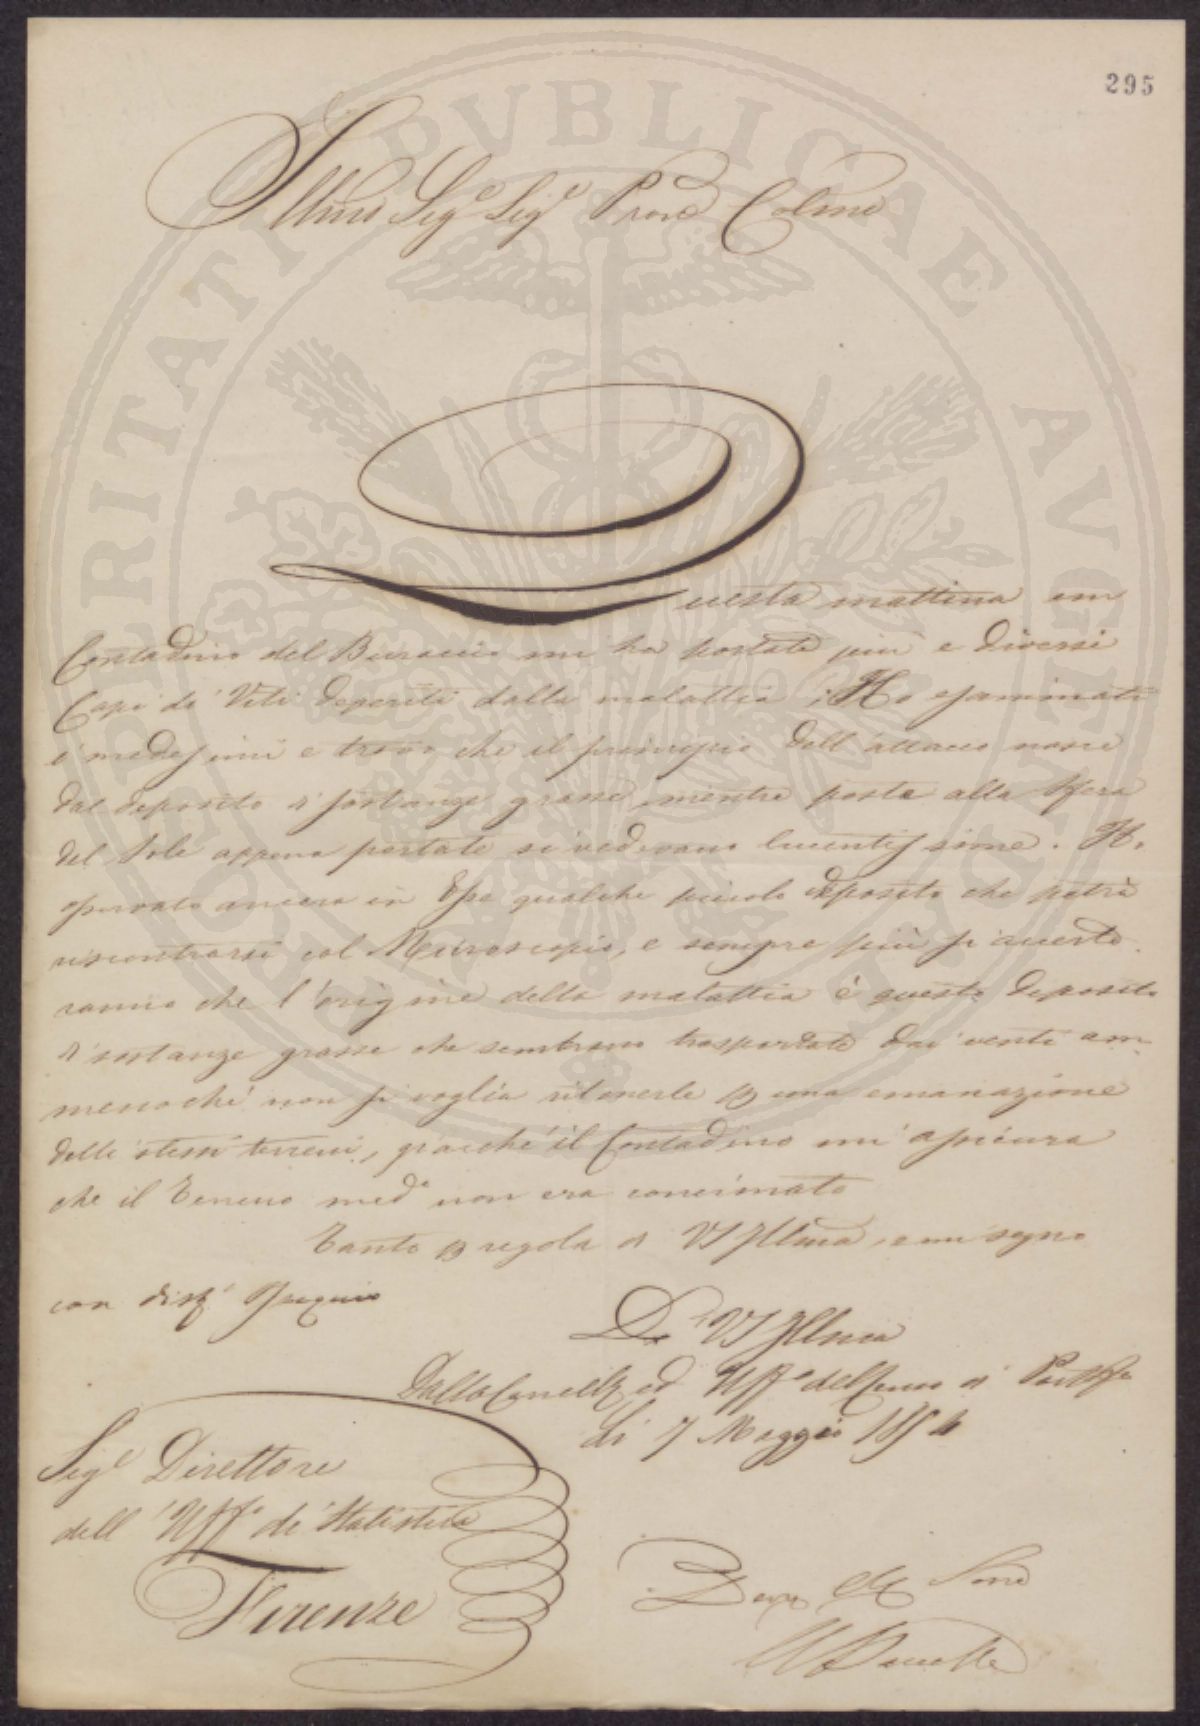 295
Illmo Sig.e Sig.e Prone Colmo
Questa mattina un
Contadino del Buraccio mi ha portate più e diversi
Capi di Viti deperiti dalla malattia; Ho esaminati
i medesimi e trovo che il principio dell'attacco nasce
dal deposito di sostanze grasse, mentre poste alla sfera
del Sole appena portate si vedevano lucentissime. Ho
osservato ancora in Esse qualche piccolo deposito che potrà
riscontrarsi col Microscopio, e sempre più si accerte-
ranno che l'origine della malattia è questo deposito
di sostanze grasse che sembrano trasportate dai venti am-
menoché non si voglia ritenerle p una emanazione
delli stessi terreni, giacché il Contadino mi assicura
che il Terreno med.o non era concimato
Tanto p regola di VS Illma, e mi segno
con dist.o Ossequio
Di VS Illma
Dalla Cancell. ed Uff.o del Censo di
Li 7 Maggio 1854
Sig.e Direttore
dell'Uff.o di Statistica
Firenze